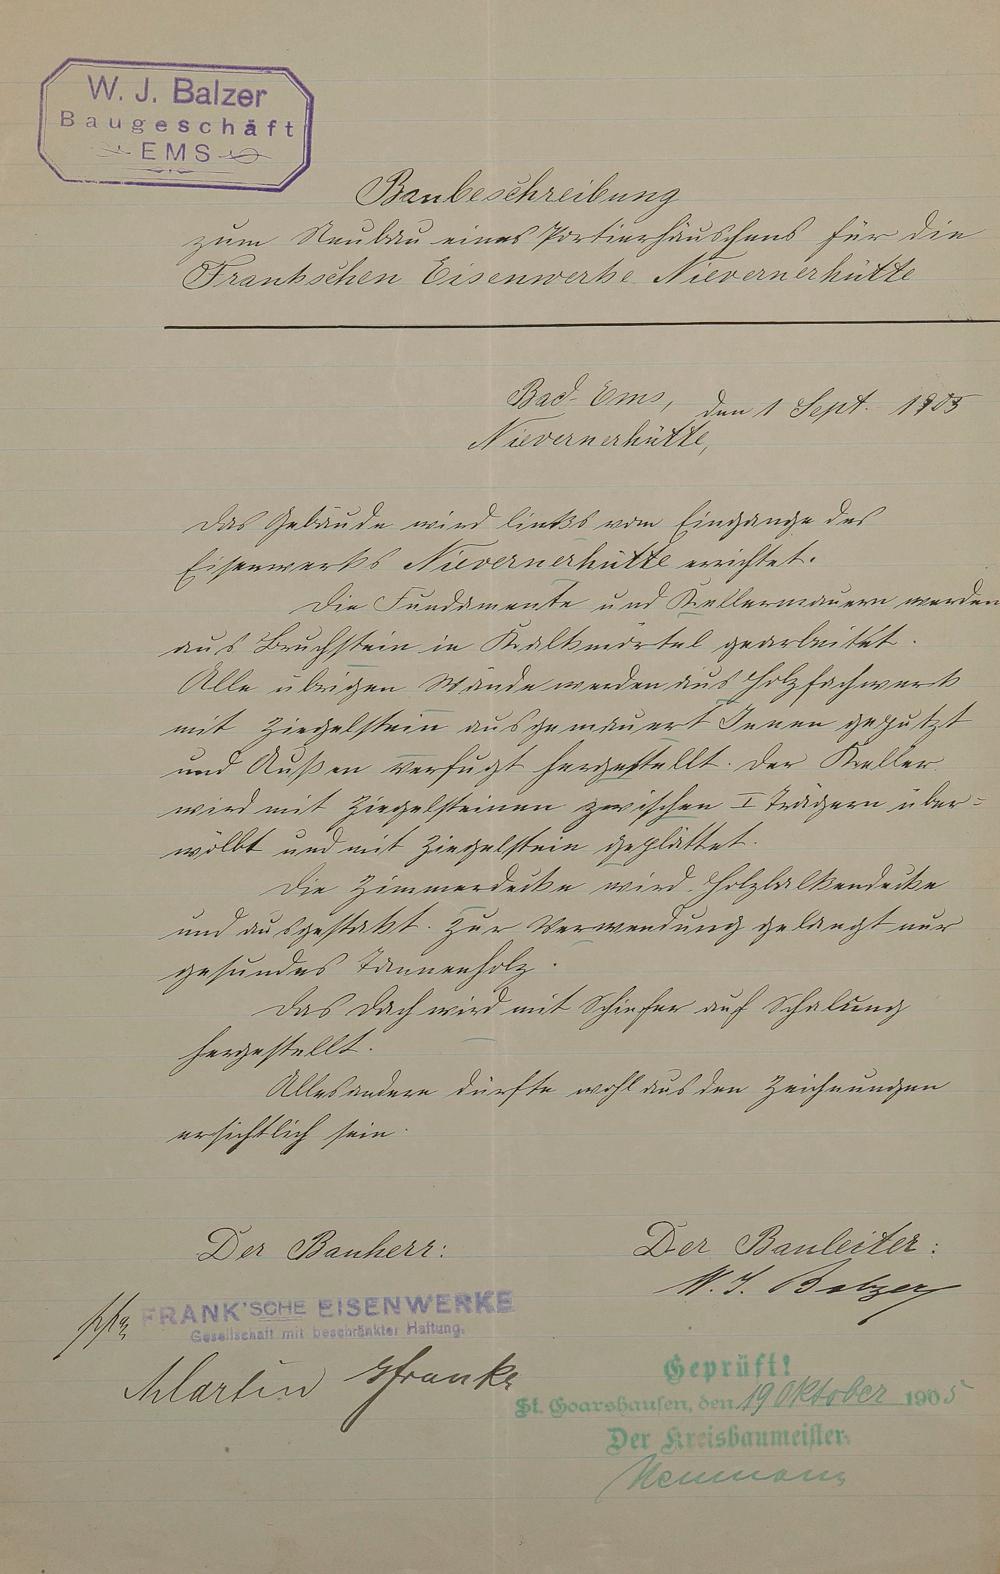 W. J. Balzer
Baugeschäft
EMS
Baubeschreibung
zum Neubau eines Portierhäuschens für die
Frankschen Eisenwerke Nievernerhütte
Bad Ems, den 1 Sept. 1905
Nievernerhütte,
Das Gebäude wird links vom Eingange des
Eisenwerks Nievernerhütte errichtet.
Die Fundamente und Kellermauern werden
aus Bruchstein in Kalkmörtel gearbeitet.
Alle übrigen Wände werden aus Holzfachwerk
mit Ziegelstein ausgemauert Innen geputzt
und Außen verfugt hergestellt. Der Keller
wird mit Ziegelsteinen zwischen I Trägern über=
wölbt und mit Ziegelstein geplättet.
Die Zimmerdecke wird Holzbalkendecke
und ausgestakt. Zur Verwendung gelangt nur
gesundes Tannenholz.
Das Dach wird mit Schiefer auf Schalung
hergestellt.
Alles andere dürfte wohl aus den Zeichnungen
ersichtlich sein.
Der Bauherr:
Der Bauleiter:
W. J. Balzer
ppa
FRANK'SCHE EISENWERKE
Gesellschaft mit beschränkter Haftung.
Martin
Geprüft!
St. Goarshausen, den 19 Oktober 1905
Der Kreisbaumeister